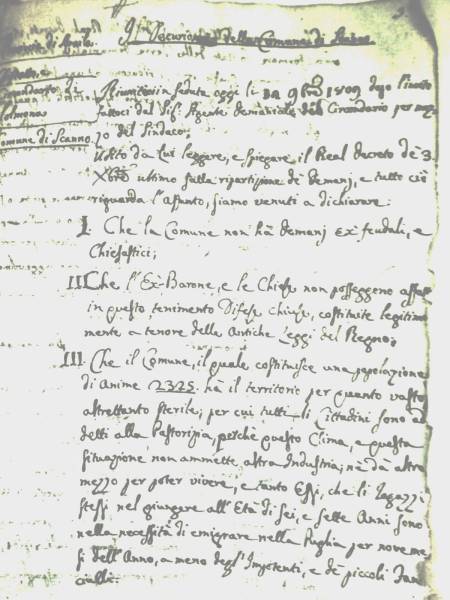 Gl' Decurioni della Comune di Scanno
Comune di Scanno
Riuniti in seduta oggi li 9bre 1809 dopo l'invito
fattoci dal Sig. Agente demaniale del Circondario per mez
zo del Sindaco;
Udito da lui leggere, e spiegare il Real decreto de' 3.
Xbre ultimo sulla ripartizione de' demanj, e tutto ciò
riguarda l'assunto, siamo venuti a dichiarare:
I. Che la Comune non hà demanj ex feudali, e
Chiesastici;
II. Che l'Ex-Barone, e le Chiese non posseggono affatto
in questo tenimento Difese chiuse, costituite legitima
mente a tenore della Antiche Leggi del Regno;
III. Che il Comune, il quale costituisce una popolazione
di Anime 2325. hà il territorio per quanto vasto
altrettanto sterile; per cui tutti li Cittadini sono ad
detti alla Pastorizia, perchè questo Clima, e questa
situazione non ammette altra Industria; nè dà altro
mezzo per poter vivere, e tanto Essi, che li Ragazzi
stessi nel giungere all'Età di sei, e sette Anni sono
nella necessità di emigrare nella Puglia per nove me
si dell'Anno, a meno degl'Impotenti, e de' piccoli Fan
ciulli.